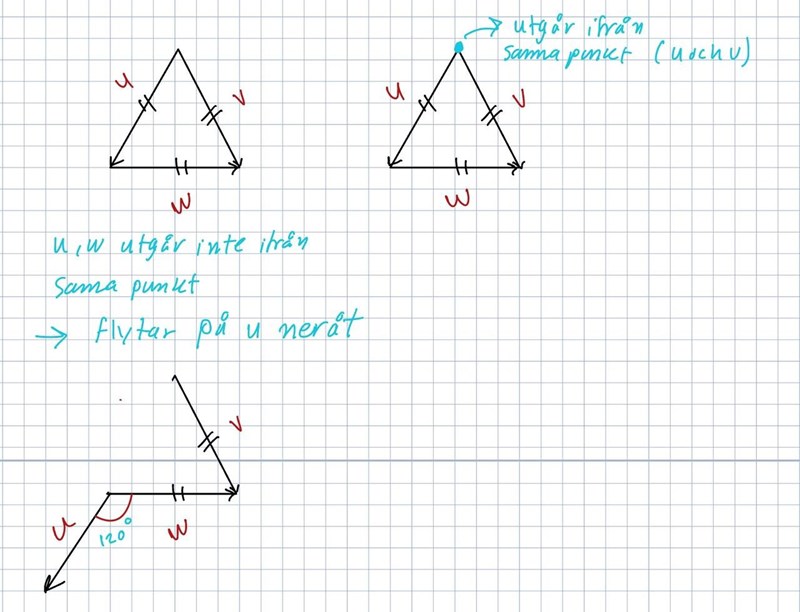 utgår ifrån
samma punkt (u och v)
u
v
w
u
v
w
u, w utgår inte ifrån
samma punkt
→ flytar på u neråt
v
u
120°
w